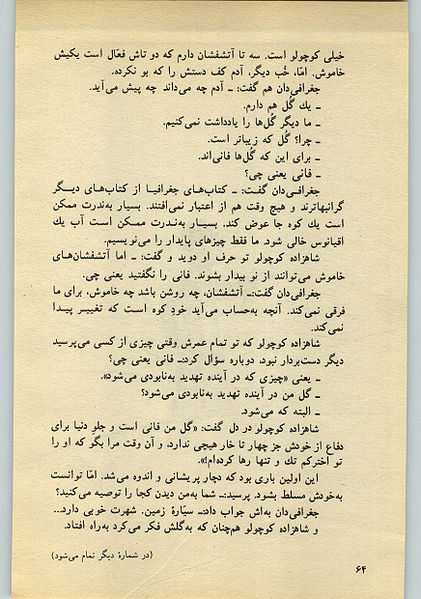 خیلی کوچولو است. سه تا آتشفشان دارم که دو تاش فعّال است یکیش
خاموش. امّا، خُب دیگر، آدم کف دستش را که بو نکرده.
جغرافی‌دان هم گفت: ــ آدم چه می‌داند چه پیش می‌آید.
ــ یك گُل هم دارم.
ــ ما دیگر گُل‌ها را یادداشت نمی‌کنیم.
ــ چرا؟ گُل که زیباتر است.
ــ برای این که گُل‌ها فانی‌اند.
ــ فانی یعنی چی؟
جغرافی‌دان گفت: ــ کتاب‌های جغرافیا از کتاب‌های دیگر
گرانبهاترند و هیچ وقت هم از اعتبار نمی‌افتند. بسیار به‌ندرت ممکن
است یك کوه جا عوض کند. بسیار به‌ندرت ممکن است آب یك
اقیانوس خالی شود. ما فقط چیزهای پایدار را می‌نویسیم.
شاهزاده کوچولو تو حرف او دوید و گفت: ــ اما آتشفشان‌های
خاموش می‌توانند از نو بیدار بشوند. فانی را نگفتید یعنی چی.
جغرافی‌دان گفت:ــ آتشفشان، چه روشن باشد چه خاموش، برای ما
فرقی نمی‌کند. آنچه به‌حساب می‌آید خودِ کوه است که تغییر پیدا
نمی‌کند.
شاهزاده کوچولو که تو تمام عمرش وقتی چیزی از کسی می‌پرسید
دیگر دست‌بردار نبود، دوباره سؤال کرد:ــ فانی یعنی چی؟
ــ یعنی «چیزی که در آینده تهدید به‌نابودی می‌شود».
ــ گل من در آینده تهدید به‌نابودی می‌شود؟
ــ البته که می‌شود.
شاهزاده کوچولو در دل گفت: «گل من فانی است و جلوِ دنیا برای
دفاع از خودش جز چهار تا خار هیچی ندارد، و آن وقت مرا بگو که او را
تو اخترکم تك و تنها رها کرده‌ام!».
این اولین باری بود که دچار پریشانی و اندوه می‌شد. امّا توانست
به‌خودش مسلط بشود. پرسید:ــ شما به‌من دیدن کجا را توصیه می‌کنید؟
جغرافی‌دان به‌اش جواب داد:ــ سیّارهٔ زمین. شهرت خوبی دارد...
و شاهزاده کوچولو هم‌چنان که به‌گلش فکر می‌کرد به‌راه افتاد.
(در شمارهٔ دیگر تمام می‌شود)
۶۴